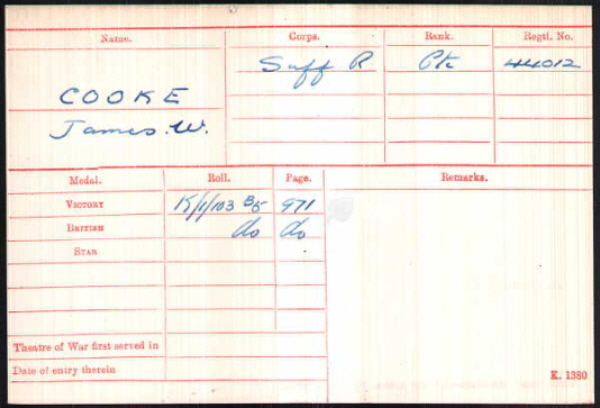 Name. Corps. Rank. Regtl. No.
Suff R Pte 44012
COOKE
James. W.
Medal. Roll. Page. Remarks.
VICTORY K/1/103 B5 971
BRITISH do do
STAR
Theatre of War first served in
Date of entry therein
K. 1380